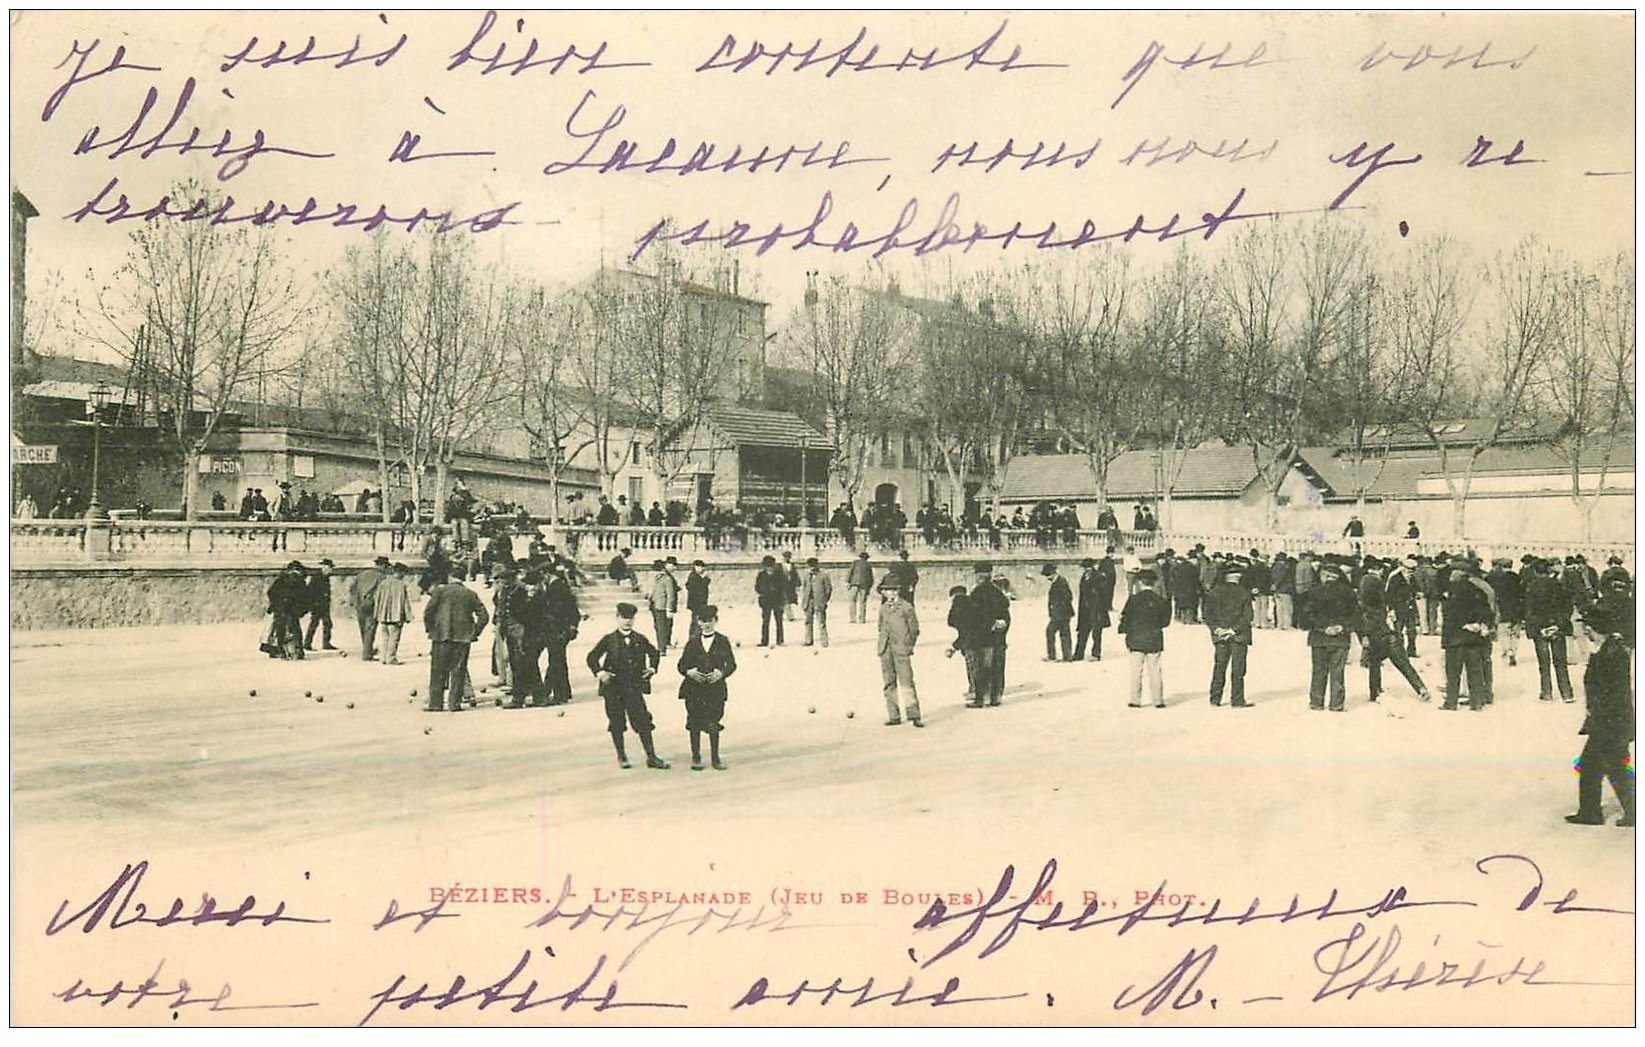 je suis bien contente que vous
alliez à Lacaune, nous nous y re-
trouverons probablement.
ARCHE
PICON
BÉZIERS. - L'ESPLANADE (JEU DE BOULES) - M. P., PHOT.
Merci et bonjour affectueux de
votre petite amie. M.-Thérèse